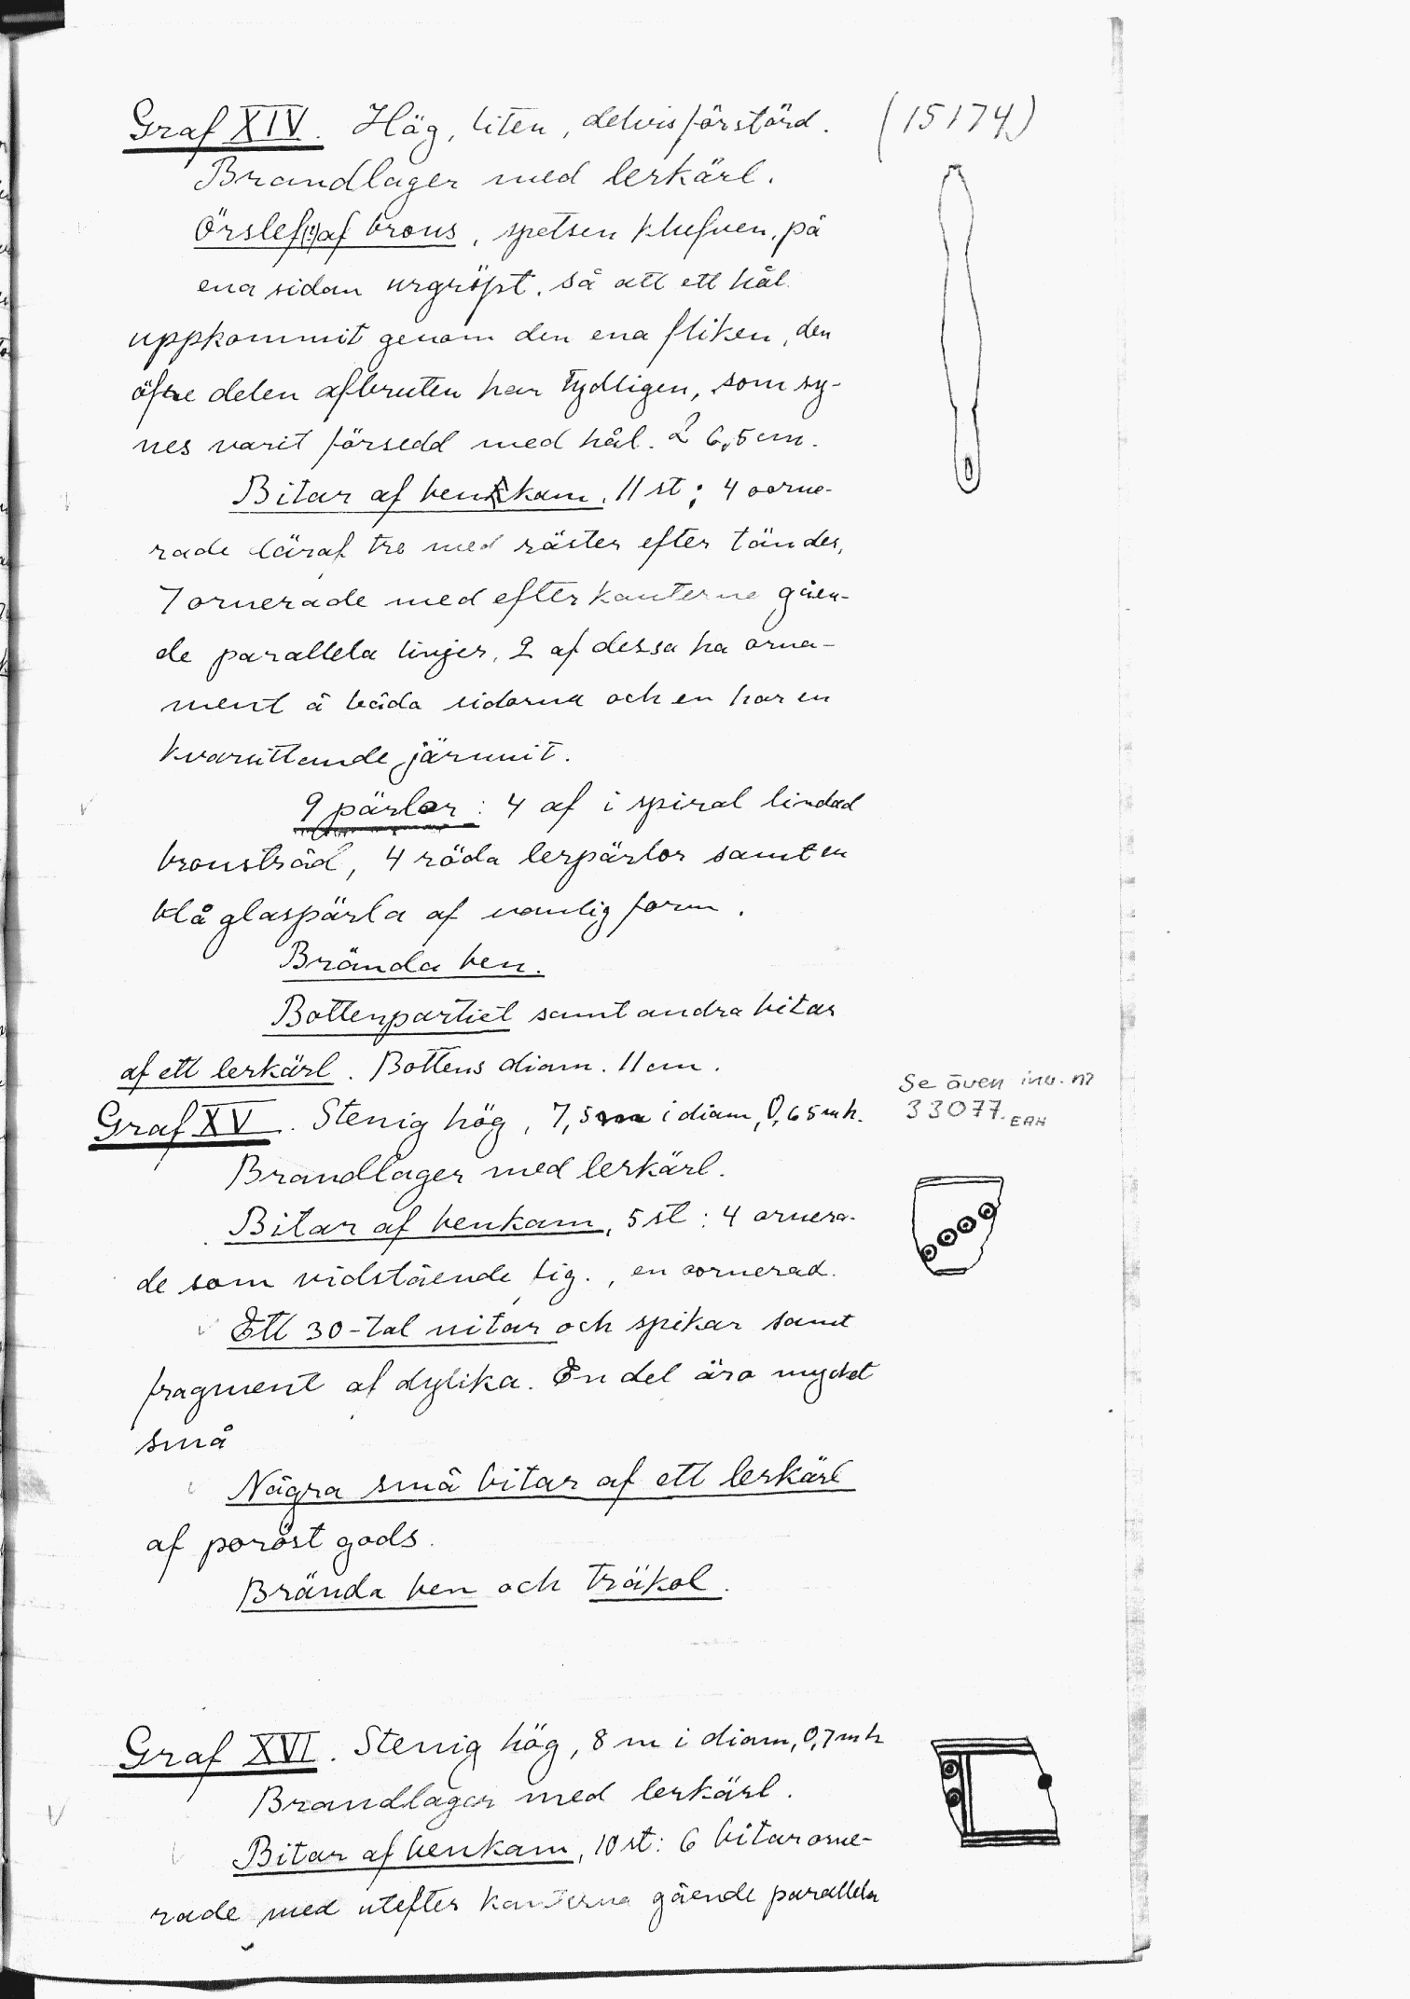 Graf XIV. Hög, liten, delvis förstörd. (15174)
Brandlager med lerkärl.
Örslef(!) af brons, spetsen klufven, på
ena sidan urgröpt, så att ett hål
uppkommit genom den ena fliken, den
öfre delen afbruten har tydligen, som sy-
nes varit försedd med hål. L 6,5 cm.
Bitar af benkam, 11 st; 4 oorne-
rade däraf tre med fäster efter tänder,
7 ornerade med efter kanterne gåen-
de parallela linjer, 2 af dessa ha orna-
ment å båda sidorna och en har en
kvarsittande järnnit.
9 pärlor: 4 af i spiral lindad
bronstråd, 4 röda lerpärlor samt en
blå glaspärla af vanlig form.
Brända ben.
Bottenpartiet samt andra bitar
af ett lerkärl. Bottens diam. 11 cm.
Se även inv. nr
33077. EAH
Graf XV. Stenig hög, 7,5 m i diam, 0,65 m h.
Brandlager med lerkärl.
Bitar af benkam, 5 st: 4 ornera-
de som vidstående fig., en oornerad.
Ett 30-tal nitar och spikar samt
fragment af dylika. En del äro mycket
små
Några små bitar af ett lerkärl
af poröst gods.
Brända ben och träkol.
Graf XVI. Stenig hög, 8 m i diam, 0,7 m h
Brandlager med lerkärl.
Bitar af benkam, 10 st: 6 bitar orne-
rade med utefter kanterna gående parallela